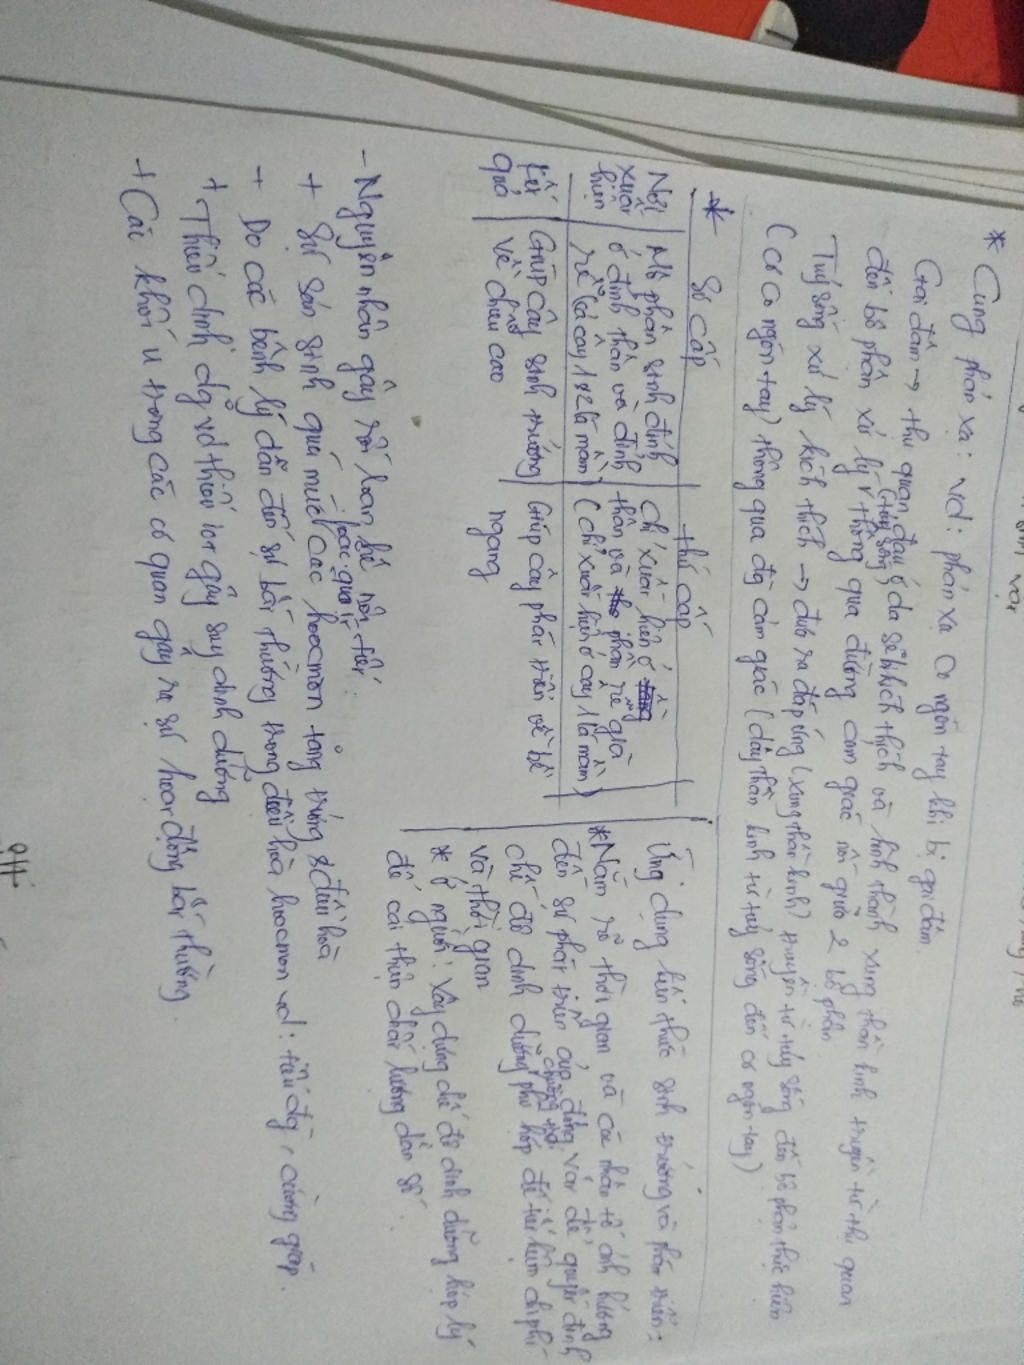 * Cung phản xạ: vd: phản xạ co ngón tay khi bị gai đâm.
Gai đâm → thụ quan đau ở da sẽ bị kích thích và hình thành xung thần kinh truyền từ thụ quan
đến bộ phận xử lý (tủy sống) thông qua đường cảm giác nối giữa 2 bộ phận
Tuỷ sống xử lý kích thích → đưa ra đáp ứng (xung thần kinh) truyền từ tuỷ sống đến bộ phận thực hiện
(cơ co ngón tay) thông qua dây cảm giác (dây thần kinh từ tuỷ sống đến cơ ngón tay)
* Sơ cấp
thứ cấp
Nơi xuất hiện
Mô phân sinh đỉnh
ở đỉnh thân và đỉnh
rễ (cả cây 1 & 2 lá mầm)
chỉ xuất hiện ở
thân và phần rễ già
(chỉ xuất hiện ở cây 1 lá mầm)
Kết quả
Giúp cây sinh trưởng
về chiều cao
Giúp cây phát triển về bề
ngang
Ứng dụng kiến thức sinh trưởng và phát triển:
* Nắm rõ thời gian và các nhân tố ảnh hưởng
đến sự phát triển của động vật để quyết định
chế độ dinh dưỡng phù hợp để tiết kiệm chi phí
và thời gian
* ở người: Xây dựng chế độ dinh dưỡng hợp lý
để cải thiện chất lượng dân số.
- Nguyên nhân gây rối loạn hệ nội tiết:
+ Sự sản sinh quá mức hoặc quá ít các hoocmon tăng trưởng & điều hoà
+ Do các bệnh lý dẫn đến sự bất thường trong điều hoà hoocmon vd: tiểu đg, cường giáp.
+ Thiếu dinh dg vd thiếu iot gây suy dinh dưỡng
+ Các khối u trong các cơ quan gây ra sự hoạt động bất thường.